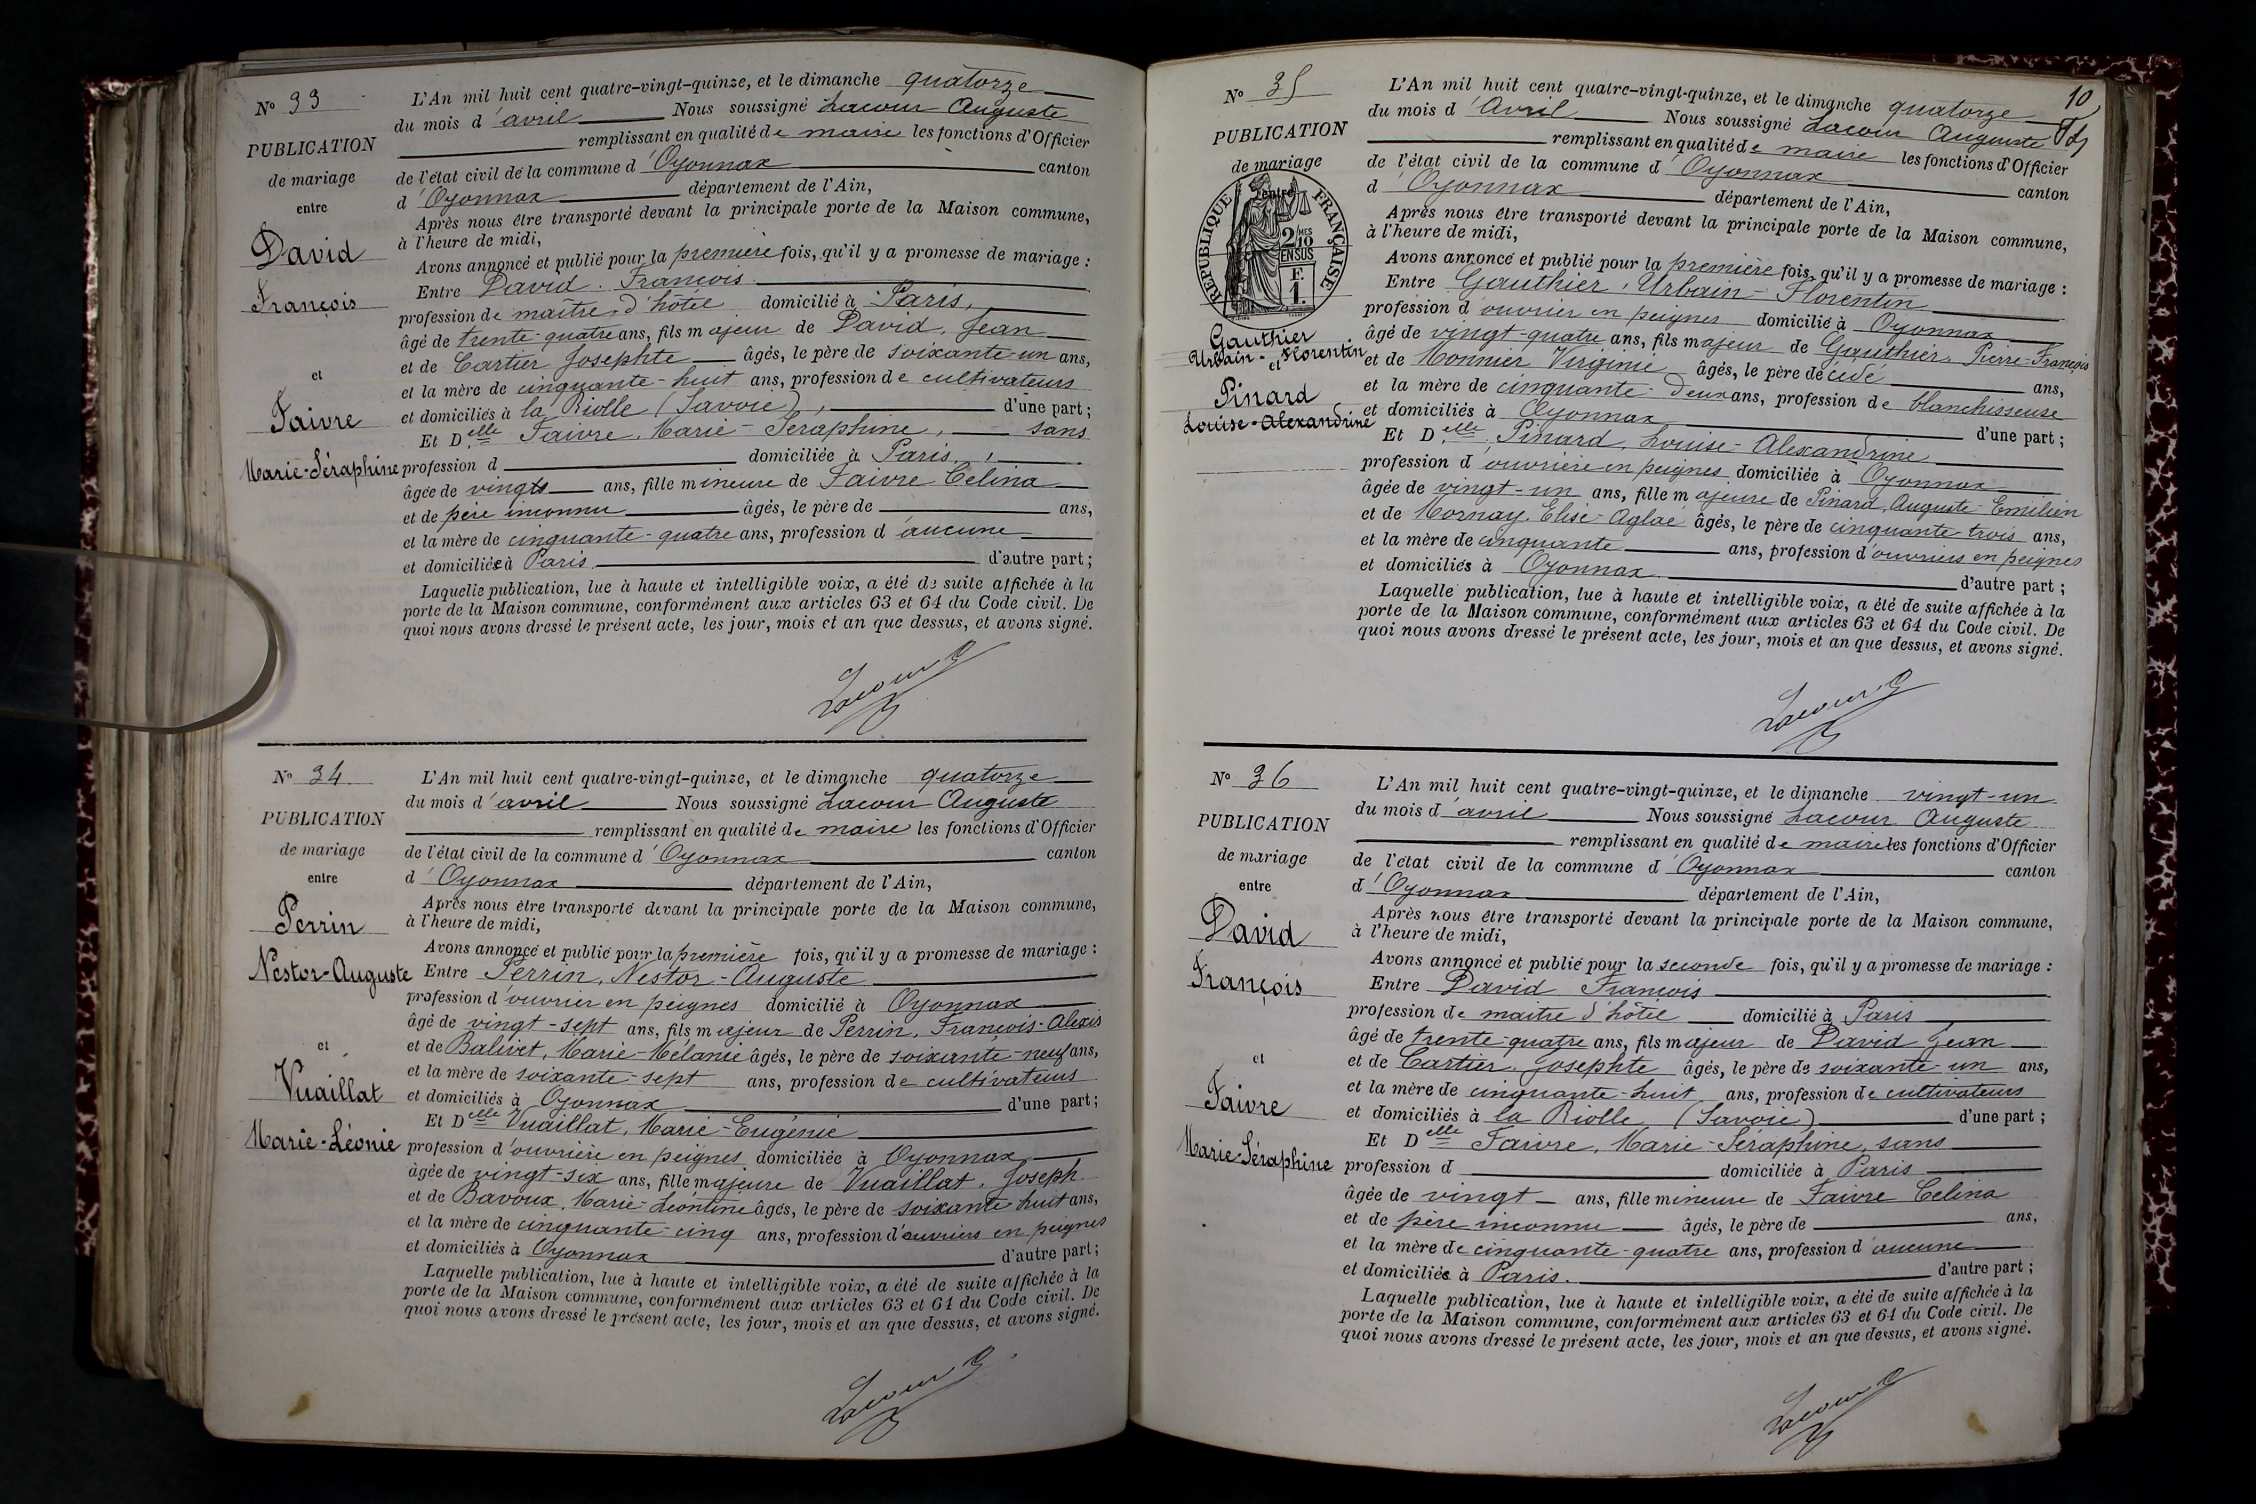 N° 33
PUBLICATION
de mariage
entre
David
François
et
Faivre
Marie-Séraphine
L'An mil huit cent quatre-vingt-quinze, et le dimanche quatorze
du mois d'avril Nous soussigné Lacour Auguste
remplissant en qualité de maire les fonctions d'Officier
de l'état civil de la commune d'Oyonnax canton
d'Oyonnax département de l'Ain,
Après nous être transporté devant la principale porte de la Maison commune,
à l'heure de midi,
Avons annoncé et publié pour la première fois, qu'il y a promesse de mariage :
Entre David François
profession de maître d'hôtel domicilié à Paris,
âgé de trente-quatre ans, fils majeur de David, Jean
et de Cartier Josephte âgés, le père de soixante-un ans,
et la mère de cinquante-huit ans, profession de cultivateurs
et domiciliés à la Biolle (Savoie), d'une part ;
Et D.elle Faivre, Marie-Séraphine, sans
profession d domiciliée à Paris,
âgée de vingt ans, fille mineure de Faivre Celina
et de père inconnu âgés, le père de ans,
et la mère de cinquante-quatre ans, profession d'aucune
et domiciliée à Paris d'autre part ;
Laquelle publication, lue à haute et intelligible voix, a été de suite affichée à la
porte de la Maison commune, conformément aux articles 63 et 64 du Code civil. De
quoi nous avons dressé le présent acte, les jour, mois et an que dessus, et avons signé.
Lacour A
N° 34
PUBLICATION
de mariage
entre
Perrin
Nestor-Auguste
et
Vuaillat
Marie-Léonie
L'An mil huit cent quatre-vingt-quinze, et le dimanche quatorze
du mois d'avril Nous soussigné Lacour Auguste
remplissant en qualité de maire les fonctions d'Officier
de l'état civil de la commune d'Oyonnax canton
d'Oyonnax département de l'Ain,
Après nous être transporté devant la principale porte de la Maison commune,
à l'heure de midi,
Avons annoncé et publié pour la première fois, qu'il y a promesse de mariage :
Entre Perrin, Nestor-Auguste
profession d'ouvrier en peignes domicilié à Oyonnax
âgé de vingt-sept ans, fils majeur de Perrin, François-Alexis
et de Balivet, Marie-Mélanie âgés, le père de soixante-neuf ans,
et la mère de soixante-sept ans, profession de cultivateurs
et domiciliés à Oyonnax d'une part ;
Et Delle Vuaillat, Marie-Eugénie
profession d'ouvrière en peignes domiciliée à Oyonnax
âgée de vingt-six ans, fille majeure de Vuaillat, Joseph
et de Bavoux, Marie-Léontine âgés, le père de soixante huit ans,
et la mère de cinquante-cinq ans, profession d'ouvriers en peignes
et domiciliés à Oyonnax d'autre part ;
Laquelle publication, lue à haute et intelligible voix, a été de suite affichée à la
porte de la Maison commune, conformément aux articles 63 et 64 du Code civil. De
quoi nous avons dressé le présent acte, les jour, mois et an que dessus, et avons signé.
Lacour A
10
N° 35
PUBLICATION
de mariage
entre
RÉPUBLIQUE FRANÇAISE
2/10 MES
EN SUS
F.
1.
Gauthier
Urbain-Florentin
et
Pinard
Louise-Alexandrine
L'An mil huit cent quatre-vingt-quinze, et le dimanche quatorze
du mois d'Avril Nous soussigné Lacour Auguste
remplissant en qualité de maire les fonctions d'Officier
de l'état civil de la commune d'Oyonnax canton
d'Oyonnax département de l'Ain,
Après nous être transporté devant la principale porte de la Maison commune,
à l'heure de midi,
Avons annoncé et publié pour la première fois, qu'il y a promesse de mariage :
Entre Gauthier, Urbain-Florentin
profession d'ouvrier en peignes domicilié à Oyonnax
âgé de vingt-quatre ans, fils majeur de Gauthier, Pierre-François
et de Monnier Virginie âgés, le père décédé ans,
et la mère de cinquante-deux ans, profession de blanchisseuse
et domiciliés à Oyonnax d'une part ;
Et D.elle Pinard, Louise-Alexandrine
profession d'ouvrière en peignes domiciliée à Oyonnax
âgée de vingt-un ans, fille majeure de Pinard, Auguste-Emilien
et de Mornay, Elise-Aglaé âgés, le père de cinquante-trois ans,
et la mère de cinquante ans, profession d'ouvriers en peignes
et domiciliés à Oyonnax d'autre part ;
Laquelle publication, lue à haute et intelligible voix, a été de suite affichée à la
porte de la Maison commune, conformément aux articles 63 et 64 du Code civil. De
quoi nous avons dressé le présent acte, les jour, mois et an que dessus, et avons signé.
Lacour A
N° 36
PUBLICATION
de mariage
entre
David
François
et
Faivre
Marie-Séraphine
L'An mil huit cent quatre-vingt-quinze, et le dimanche vingt-un
du mois d'avril Nous soussigné Lacour Auguste
remplissant en qualité de maire les fonctions d'Officier
de l'état civil de la commune d'Oyonnax canton
d'Oyonnax département de l'Ain,
Après nous être transporté devant la principale porte de la Maison commune,
à l'heure de midi,
Avons annoncé et publié pour la seconde fois, qu'il y a promesse de mariage :
Entre David François
profession de maître d'hôtel domicilié à Paris
âgé de trente-quatre ans, fils majeur de David Jean
et de Cartier, Josephte âgés, le père de soixante-un ans,
et la mère de cinquante-huit ans, profession de cultivateurs
et domiciliés à la Biolle (Savoie) d'une part ;
Et Delle Faivre, Marie-Séraphine, sans
profession d domiciliée à Paris
âgée de vingt ans, fille mineure de Faivre Celina
et de père inconnu âgés, le père de ans,
et la mère de cinquante-quatre ans, profession d'aucune
et domiciliée à Paris. d'autre part ;
Laquelle publication, lue à haute et intelligible voix, a été de suite affichée à la
porte de la Maison commune, conformément aux articles 63 et 64 du Code civil. De
quoi nous avons dressé le présent acte, les jour, mois et an que dessus, et avons signé.
Lacour A